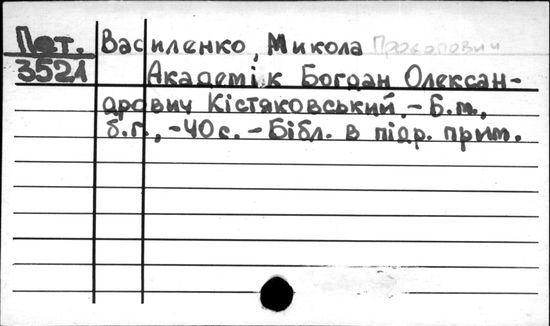 Пет. Василенко, Микола Прокопович
3521 Академік Богдан Олексан-
дрович Кістяковський. – Б.м.,
б.г., – 40 с. – Бібл. в підр. прим.